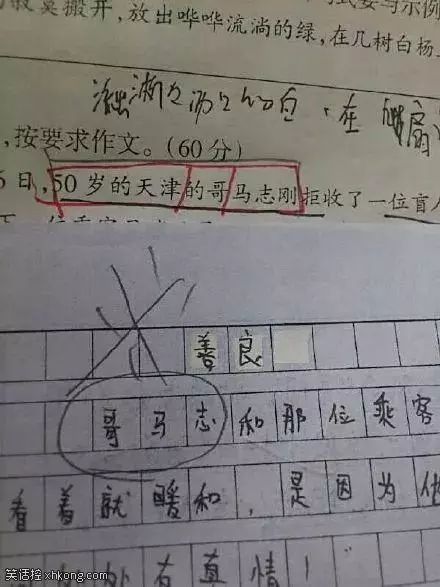 寂寞搬开，放出哗哗流淌的绿，在几树白杨
淌出淅沥沥的白，在
，按要求作文。(60分)
5日，50岁的天津的哥马志刚拒收了一位盲人
善良
哥马志和那位乘客
看着就暖和，是因为他
处有真情！
笑话控 xhkong.com